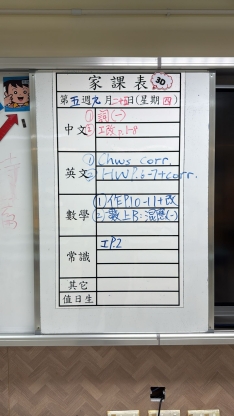 家課表 3D
第五週九月二十五日(星期四)
中文 ①詞(一)
②工改p.1-8
英文 ① Chws corr.
② HWP.6-7+corr.
數學 ①作P10-11+改
②數上B:温習(一)
常識 工P.2
其它
值日生